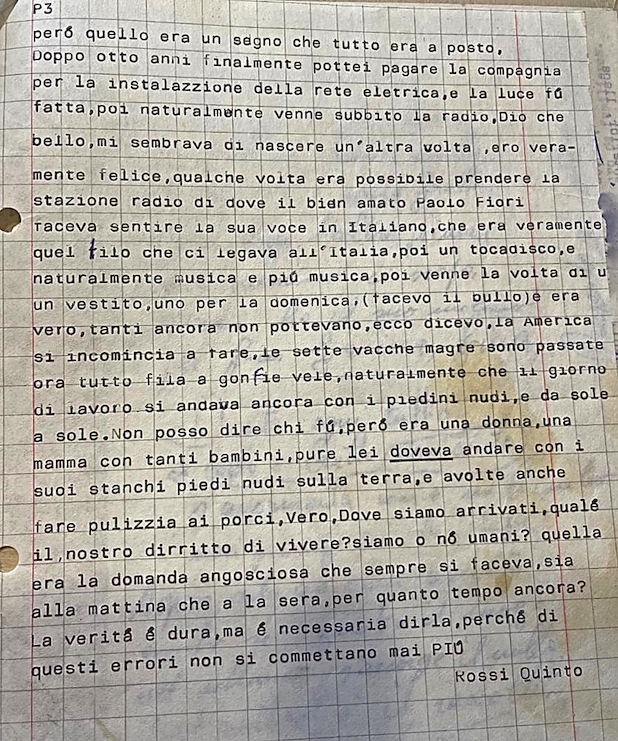 P3
peró quello era un segno che tutto era a posto.
Doppo otto anni finalmente pottei pagare la compagnia
per la instalazzione della rete eletrica,e la luce fú
fatta,poi naturalmente venne subbito la radio,Dio che
bello,mi sembrava di nascere un'altra volta ,ero vera-
mente felice,qualche volta era possibile prendere la
stazione radio di dove il bien amato Paolo Fiori
faceva sentire la sua voce in Italiano,che era veramente
quel filo che ci legava all'Italia,poi un tocadisco,e
naturalmente musica e piú musica,poi venne la volta di u
un vestito,uno per la domenica,(facevo il bullo)é era
vero,tanti ancora non pottevano,ecco dicevo,la America
si incomincia a fare,le sette vacche magre sono passate
ora tutto fila a gonfie vele,naturalmente che il giorno
di lavoro si andava ancora con i piedini nudi,e da sole
a sole.Non posso dire chi fú,peró era una donna,una
mamma con tanti bambini,pure lei doveva andare con i
suoi stanchi piedi nudi sulla terra,e avolte anche
fare pulizzia ai porci,Vero,Dove siamo arrivati,qualé
il,nostro dirritto di vivere?siamo o nó umani? quella
era la domanda angosciosa che sempre si faceva,sia
alla mattina che a la sera,per quanto tempo ancora?
La veritá é dura,ma é necessaria dirla,perché di
questi errori non si commettano mai PIÚ
Rossi Quinto